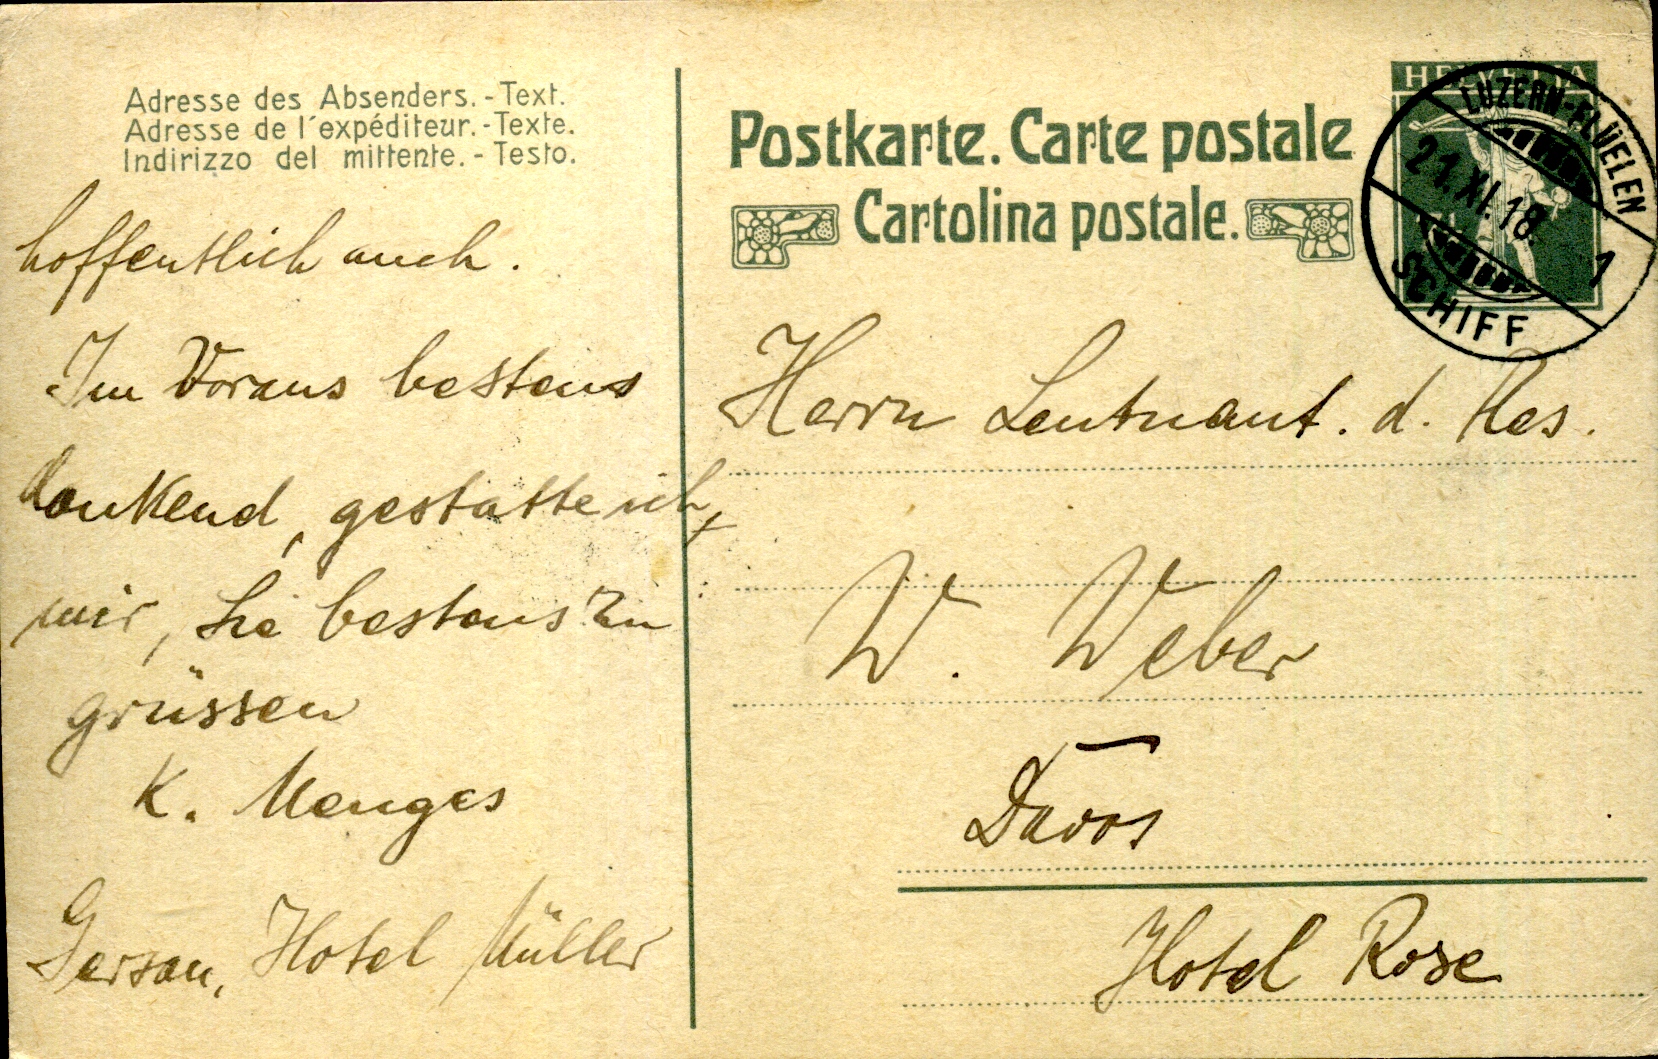 Adresse des Absenders. - Text.
Adresse de l'expéditeur. - Texte.
Indirizzo del mittente. - Testo.
hoffentlich auch.
Im Voraus bestens
dankend, gestatte ich
mir, Sie bestens zu
grüssen
K. Menges
Gersau, Hotel Müller
Postkarte. Carte postale
Cartolina postale.
HELVETIA
LUZERN-FLÜELEN
21.XI.18. 1
SCHIFF
Herrn Leutnant. d. Res.
W. Weber
Davos
Hotel Rose